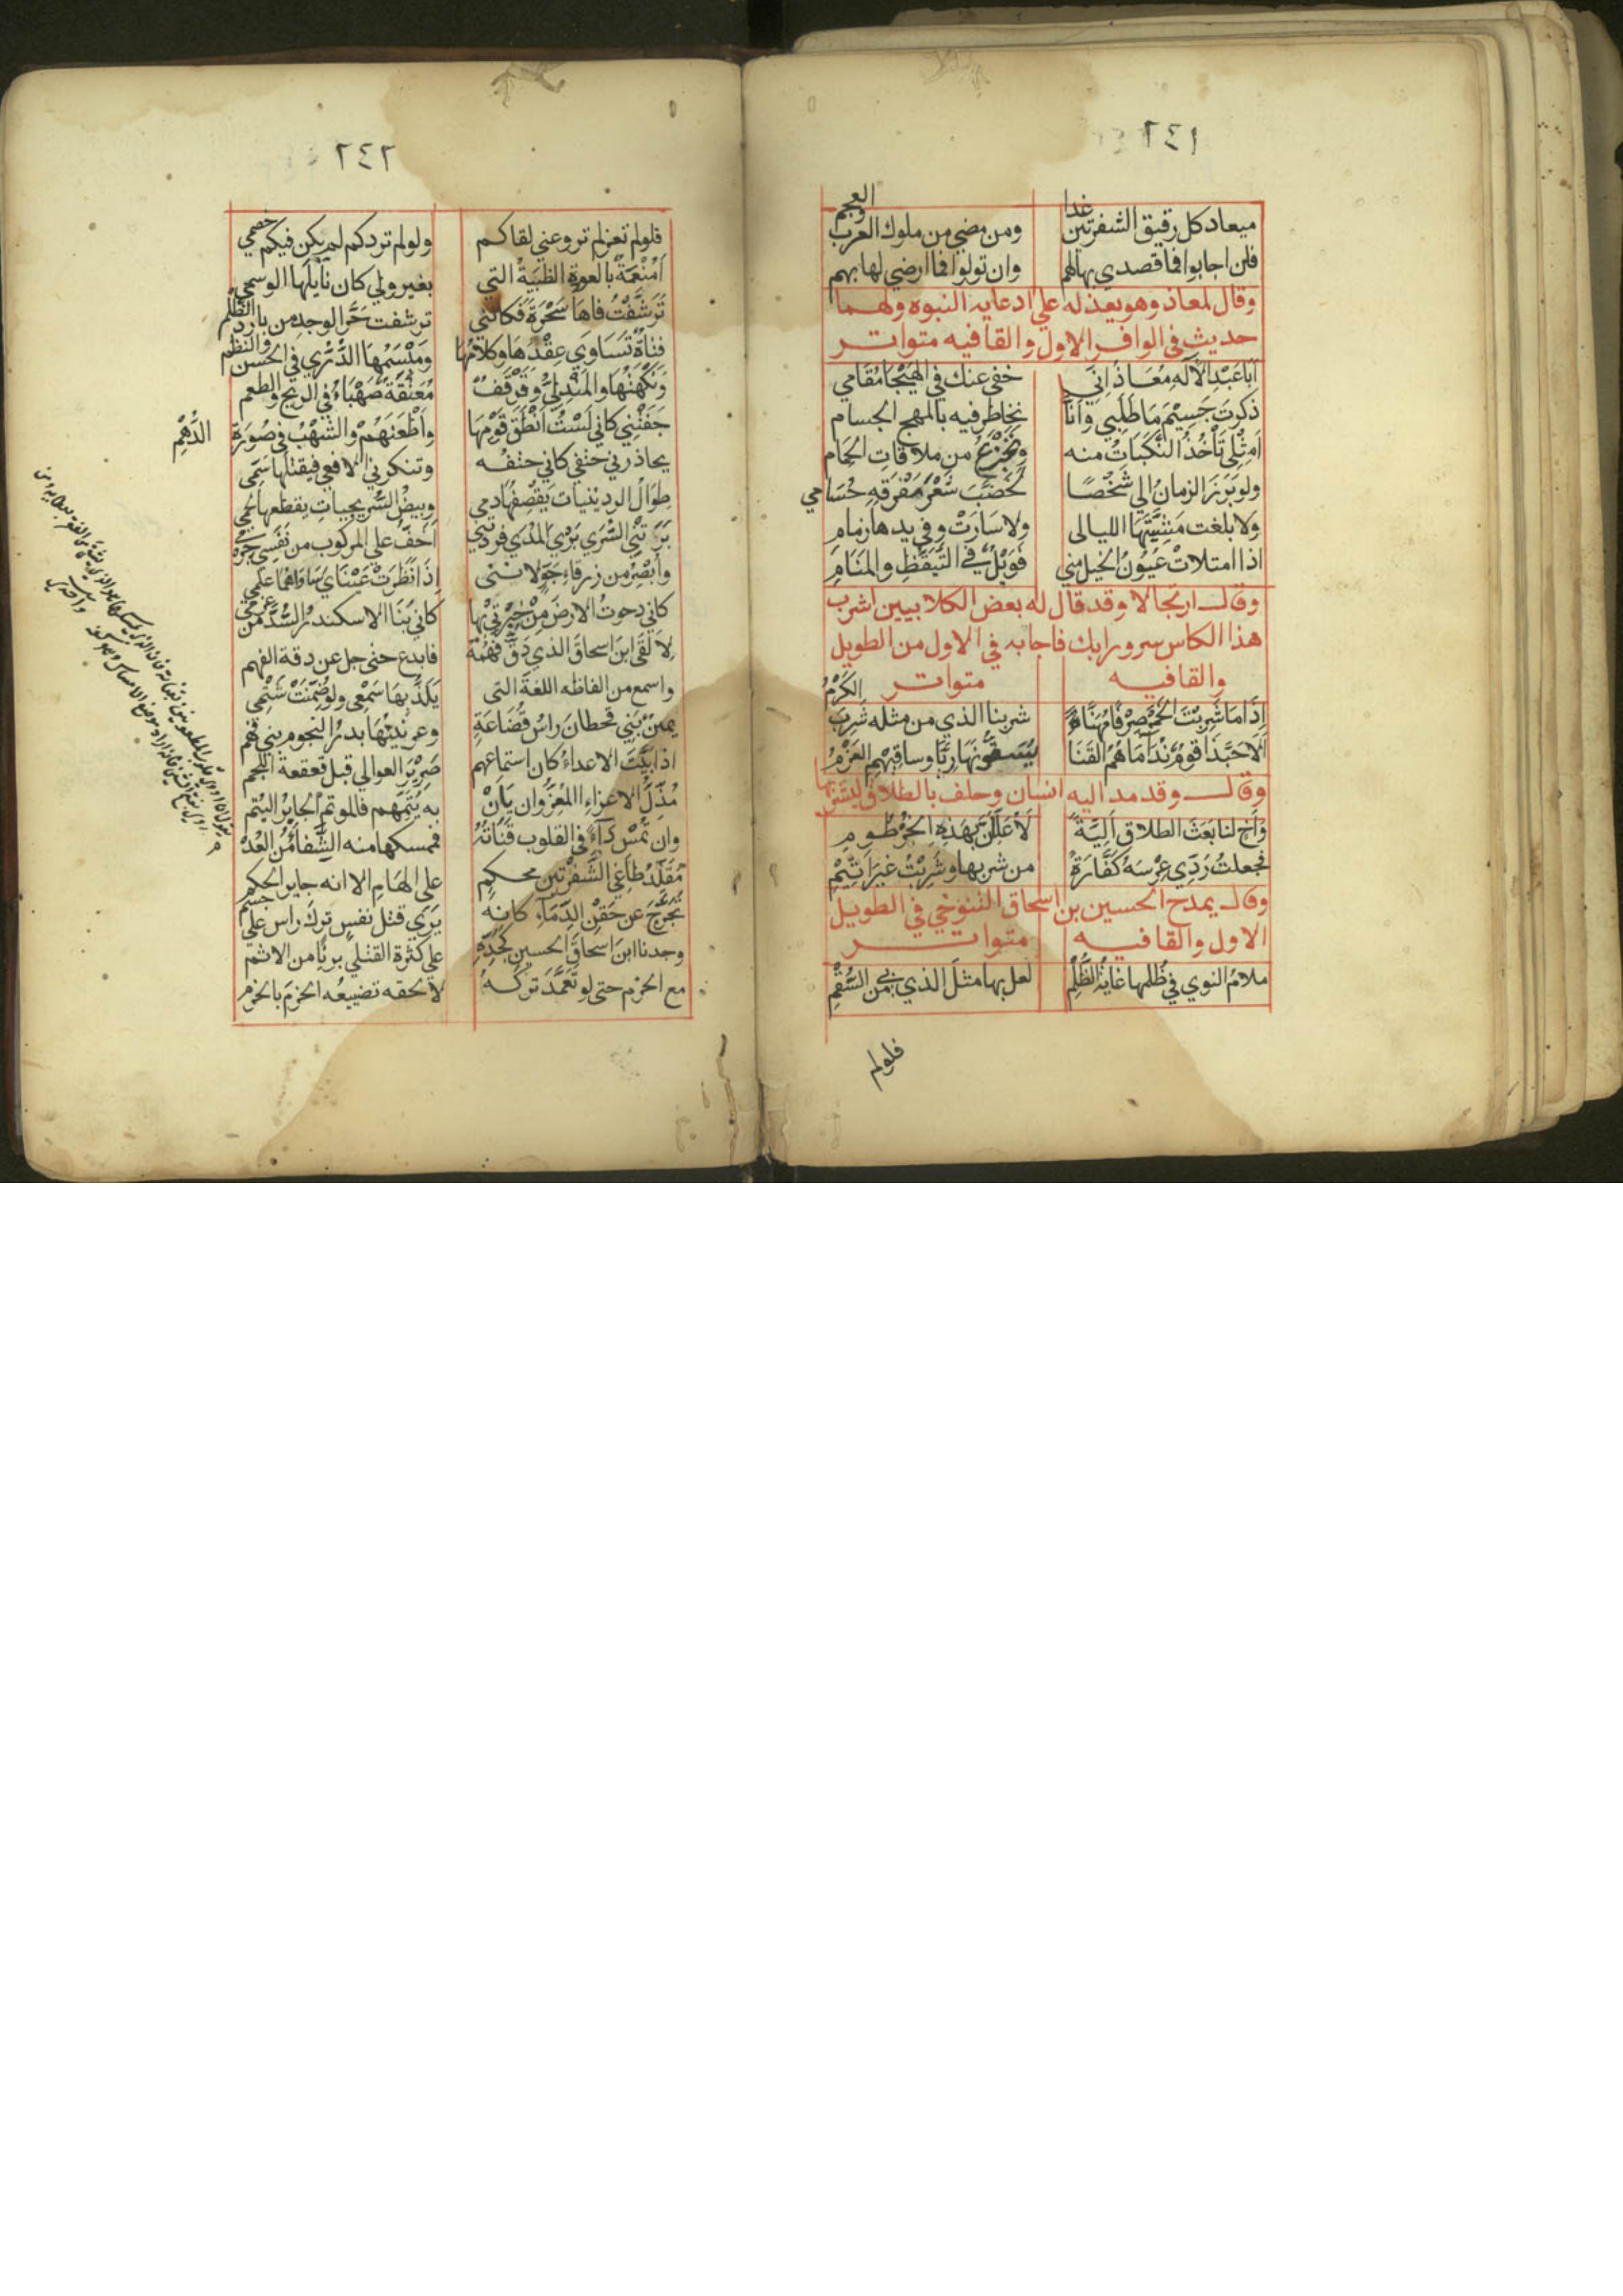 ٢٤١
ميعاد كل رقيق الشفرتين غدا ومن مضي من ملوك العرب والعجم
فان اجابوا فما قصدي بها لهم وان تولوا فما ارضي لها بهم
وقال لمعاذ وهو يعذله علي ادعايه النبوه ولهما
حديث في الوافر الاول والقافيه متواتر
اَبَا عَبْدِ الآلَهِ مُعَاذَ اِنَي خفي عنك في الهَيْجَا مُقَامي
ذكرتَ جَسِيْمَ مَا طَلَبِي وَاَنَّا نخاطر فيه بالمهج الجسام
اَمِثْلي تَأْخُذُ النَّكَبَاتُ منه ويَجْزَعُ من ملاقات الحَمام
ولو بَرَزَ الزمانُ الي شَخْصًا لَخَضَّبَ شَعْرَ مَفْرَقِهِ حُسَامي
ولا بلغت مَشِيَّتَهَا الليالى ولا سَارَتْ وفي يدها زمام
اذا امتلات عُيُونُ الخيل مني فَوَيْلٌ في التَّيَقُّظِ والمَنَامِ
وقال ارتجالا وقد قال له بعض الكلابيين اشرب
هذا الكاس سرورا بك فاجابه في الاول من الطويل
والقافيه متواتر
اِذَا مَا شَرِبْتَ الخَمْرَ صِرْفًا مُهَنَّاءً شربنا الذي من مثله شَرِبَ الكَرْمُ
اَلَا حَبَّذَا قومٌ نَدَامَاهُمُ القَنَا يُسَقُّونَهَا رِيًّا وساقِيْهِمِ العَزْمُ
وقال وقد مد اليه انسان وحلف بالطلاق ليشربنها
وَأَخٍ لنا بَعَثَ الطلاق اَلِيَّةً لَأُعَلَّلَنَّ بِهَذِهِ الخرْطُومِ
فجعلتُ رَدِّي عِرْسَهُ كَفَّارَةً من شربها وشَرِبْتُ غيرَ اَثِيْمِ
وقال يمدح الحسين بن اسحاق التنوخي في الطويل
الاول والقافيه متواتر
ملامُ النوي في ظُلمها غايةُ الظُّلْمِ لعل بها مثلَ الذي بي من السُّقْمِ
فلولم
٢٤٢
فلولم تغزلم تزو عني لقاكم ولولم تردكم لم يكن فيكم خصمي
اَمُنْعِمَةٌ بالعودة الظَبيَةُ التي بغير ولي كان نايلَها الوسمي
تَرَشَّفْتُ فاهَا سَحْرَةً فكانني ترشفت حَرَّ الوجد من بارد الظَّلْمِ
فتاةٌ تَسَاوَي عِقْدُهَا وكلامُهَا وَمَبْسَمُهَا الدُّرّي في الحسن والنظم
وَنَكْهَتُهَا والمَنْدليُّ وقَرْقَفٌ مُعَتَّقَةٌ صَهْبَاءُ في الريح والطعم
جَفَتْنِي كاني لَسْتُ اَنْطَقَ قَوْمِهَا واَطْعَنَهُمْ والشُهْبُ في صُورَة الدُّهْمِ
يحاذرني حتفي كاني حتفُه وتنكرني الافعي فيقتلها سَمِّى
طِوَالُ الردينيات يَقْصِفُهَا دمي وبيضُ السُّرَيجيات يقطعها لحمي
بَرَتْنِي السُّرَي بَرْيَ المُدَي فرددنني اَخَفَّ علي المركوب من نَفَسِي جِرْمى
واَبْصَرَ من زرقاءِ جَوٍّ لاننى اِذَا نَظَرَتْ عَيْنَايَ سَاوَاهُمَا علمي
كاني دحوتُ الارضَ مِنْ خِبْرَتي بِهَا كاني بَنَا الاسكندرُ السُّدَّ من عزمي
لِاَلْقَي ابنَ اسحاقَ الذي دَقَّ فَهْمُهُ فابدع حتى جل عن دقة الفهم
واسمع من الفاظه اللغةَ التى يَلَذُّ بِهَا سَمْعِي ولو ضُمِّنَتْ شَتْمِي
يمينُ بَنِي قحطانَ راسُ قُضَاعَةٍ وعرنينُهَا بدرُ النجوم بني فَهْمِ
اذا بَيَّتَ الاعداءَ كان استماعهم صَرِيْرَ العوالي قبل قعقعة اللجم
مُذِلُّ الاعزاءِ المُعِزُّ وان يَاِنْ به يُتْمُهم فالموتمُ الجابرُ اليُتم
وان تُمْسِ دَآءً في القلوب قَنَاتُهُ فممسكها منه الشِّفَاءُ مِن العُدْمِ
مُقَلَّدُ طَاغي الشَّفْرَتين محكمٍ علي الهَامِ الا انه جاير الحكم
تَحَرَّجَ عن حَقْنِ الدِّمَاءِ كانه يَرَي قتل نفسٍ تركَ راس علي جسم
وجدنا ابنَ اسحاقَ الحسينَ كَجَدِّهِ علي كثرة القتلي بريًّا من الاثم
مع الحزم حتى لو تَعَمَّدَ تركَهُ لالحقه تضييعُه الحزمَ بالحزم